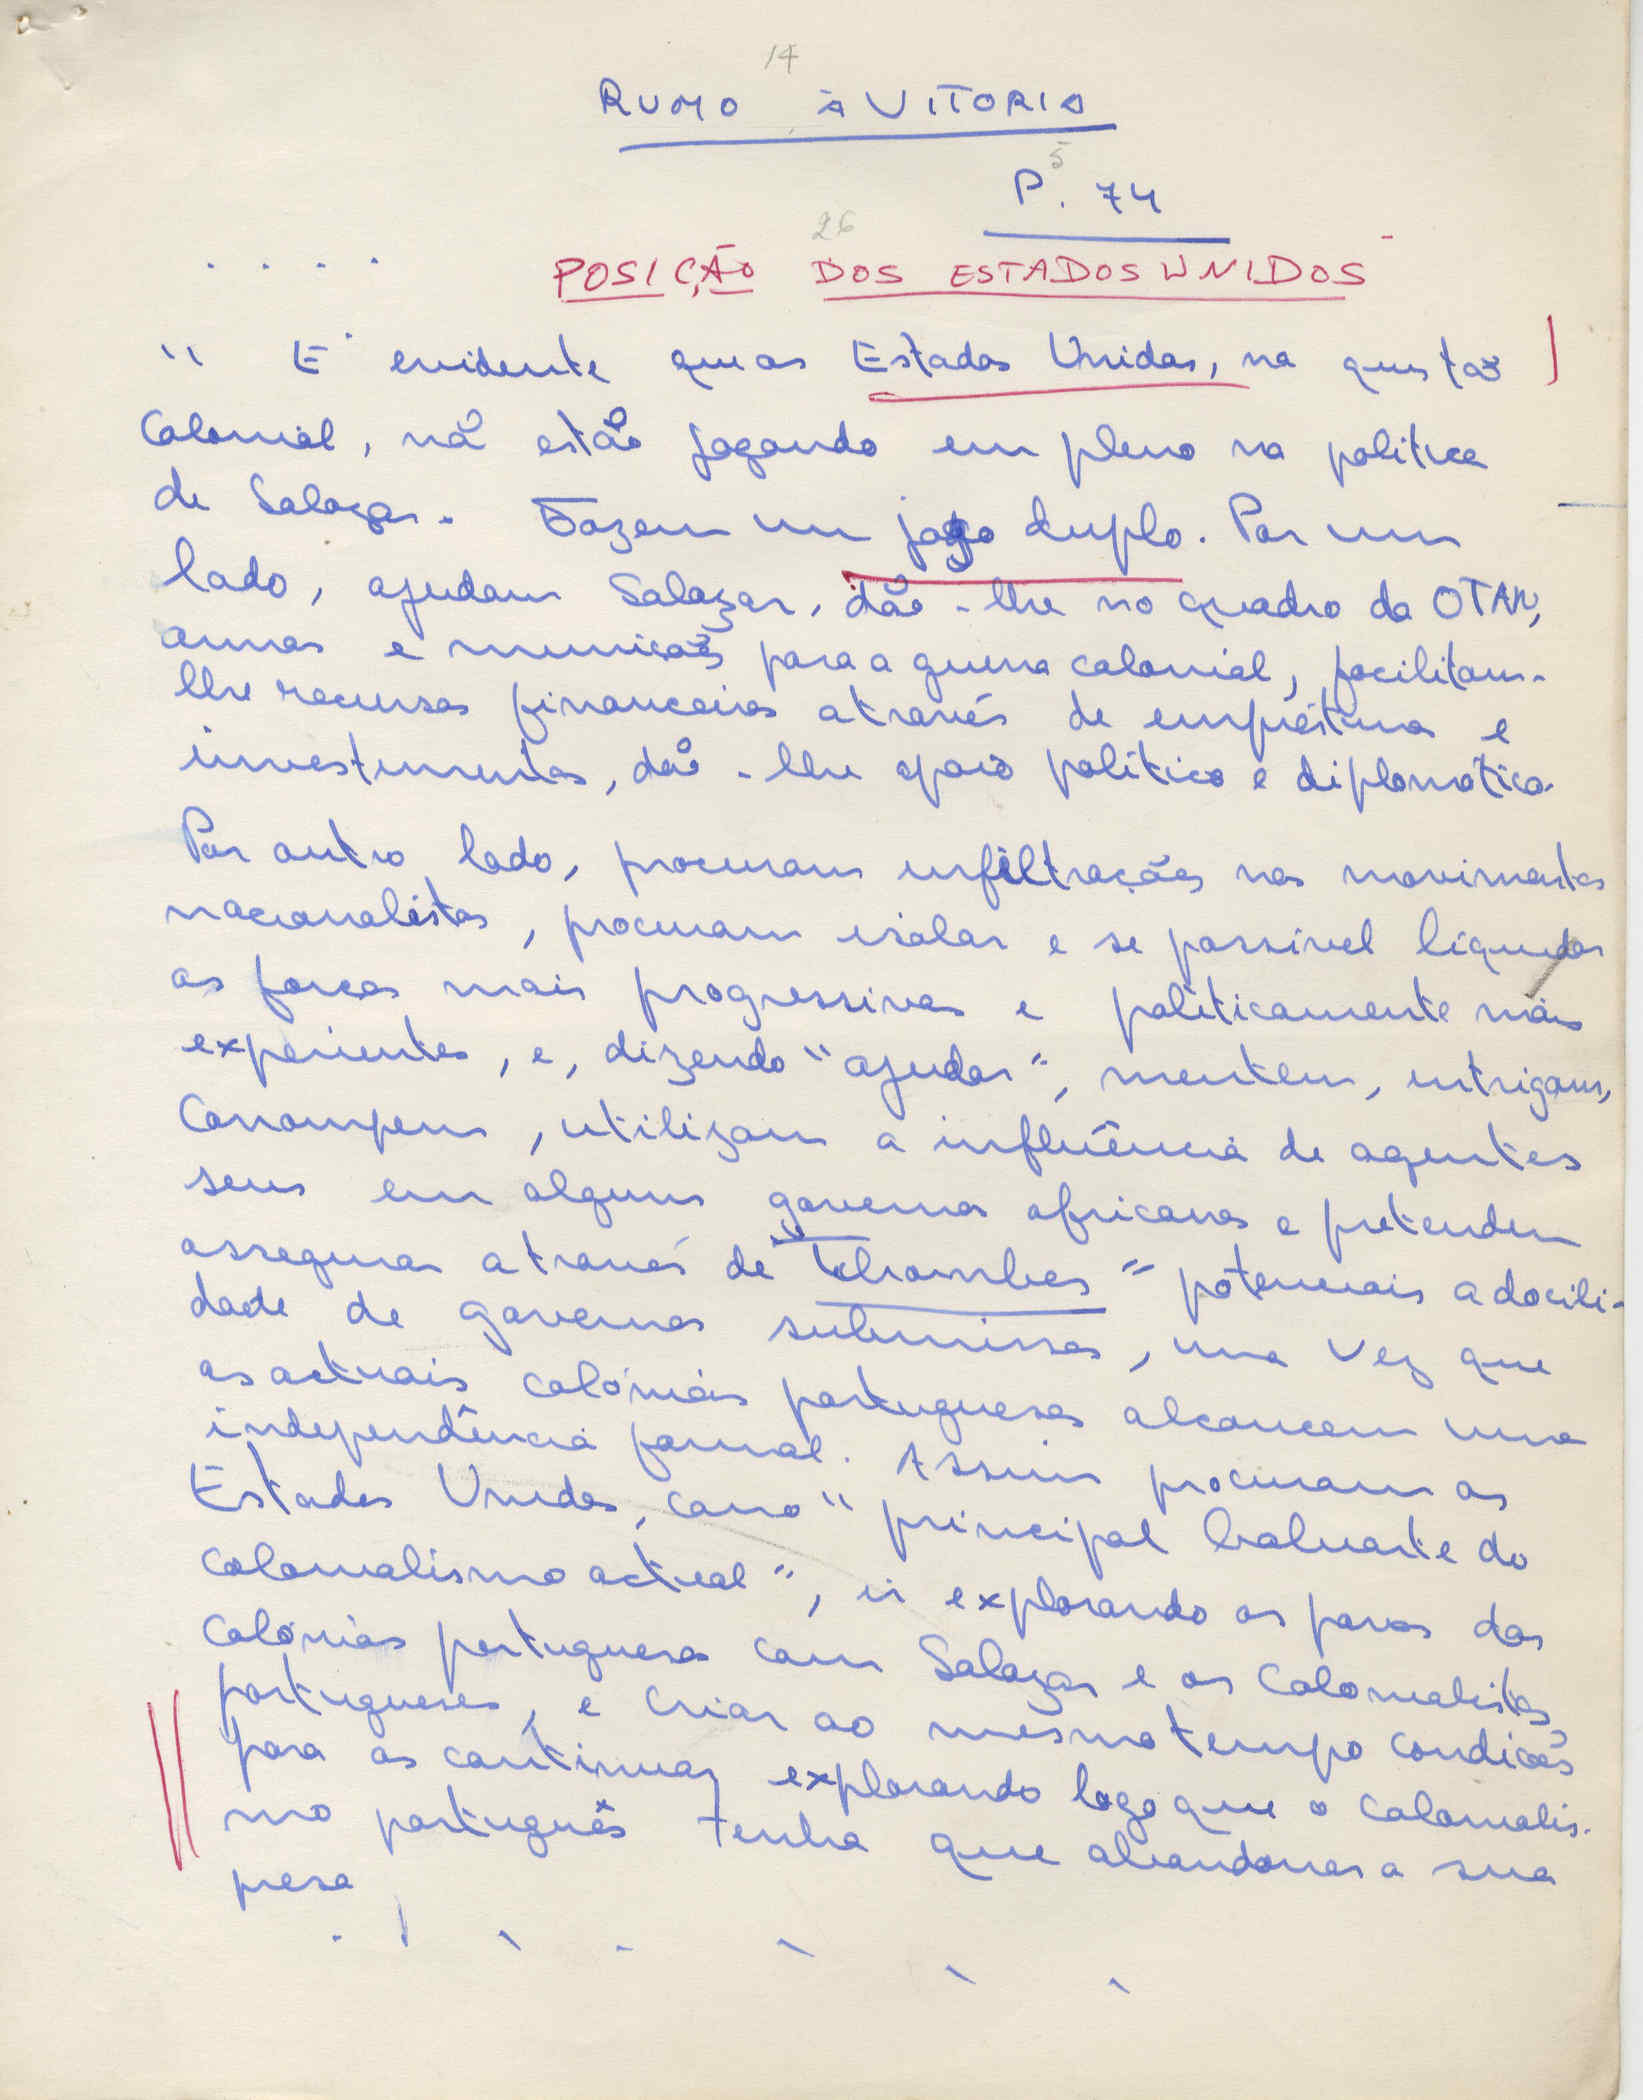 14
RUMO À VITORIA
5
P. 74
26
. . . .
POSIÇÃO DOS ESTADOS UNIDOS
" É evidente que os Estados Unidos, na questão
Colonial, não estão jogando em pleno na politica
de Salazar. Fazem um jogo duplo. Por um
lado, ajudam Salazar, dão-lhe no quadro da OTAN,
armas e munições para a guerra colonial, facilitam-
lhe recursos financeiros através de empréstimos e
investimentos, dão-lhe apoio político e diplomático.
Por outro lado, procuram infiltrações nos movimentos
nacionalistas, procuram isolar e se possivel liquidar
as forças mais progressivas e políticamente mais
experientes, e, dizendo "ajudar", mentem, intrigam,
Corrompem, utilizam a influência de agentes
seus em alguns governos africanos e pretendem
assegurar através de "tchombes" potenciais a docili-
dade de governos submissos, uma vez que
as actuais colónias portuguesas alcancem uma
independência formal. Assim procuram os
Estados Unidos, como "principal baluarte do
colonialismo actual", ir explorando os povos das
Colónias portuguesas com Salazar e os Colonialistas
portugueses, e criar ao mesmo tempo condições
para os continuar explorando logo que o colonialis-
mo português tenha que abandonar a sua
presa